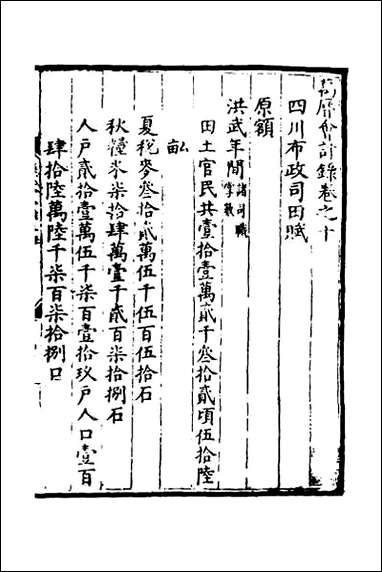 萬曆會計錄卷之十
四川布政司田賦
原額
洪武年間諸司職掌數
田土官民共壹拾壹萬貳千叁拾貳頃伍拾陸
畝
夏稅麥叁拾貳萬伍千伍百伍拾石
秋糧米柒拾肆萬壹千貳百柒拾捌石
人戶貳拾壹萬伍千柒百壹拾玖戶人口壹百
肆拾陸萬陸千柒百柒拾捌口